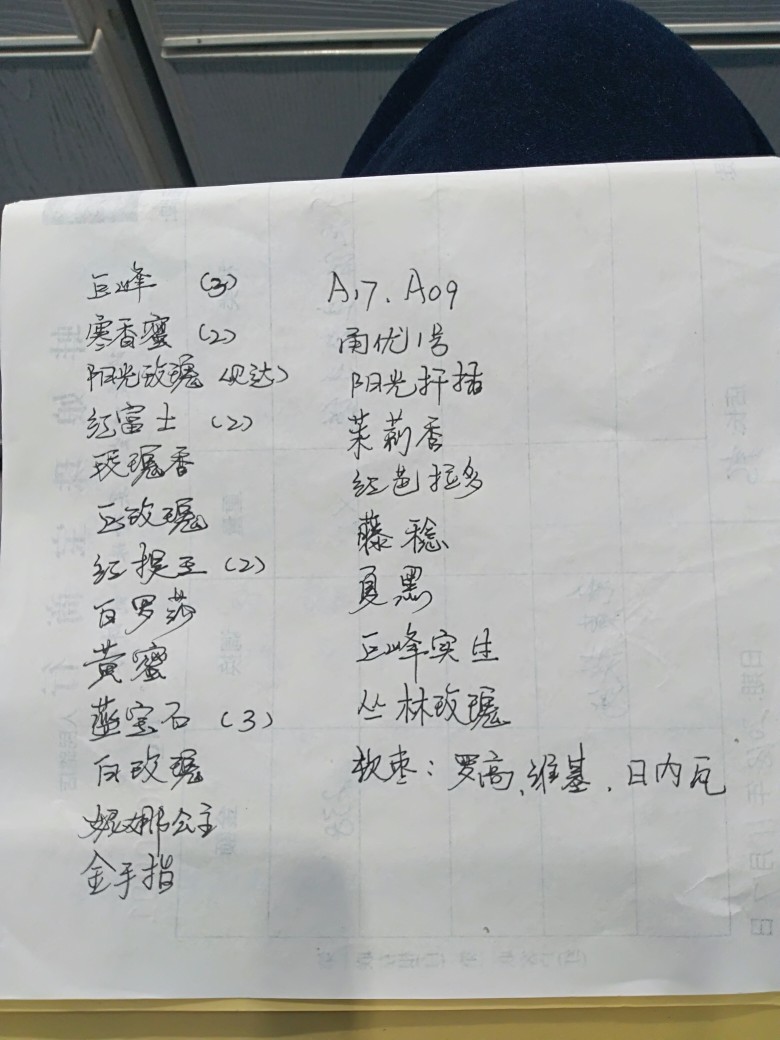 巨峰 (3)
寒香蜜 (2)
阳光玫瑰 (见达)
红富士 (2)
玫瑰香
巨玫瑰
红提王 (2)
百罗莎
黄蜜
蓝宝石 (3)
白玫瑰
妮娜公主
金手指
A17. A09
甬优1号
阳光扦插
茉莉香
红芭拉多
藤稔
夏黑
巨峰实生
丛林玫瑰
软枣: 罗高、维基. 日内瓦